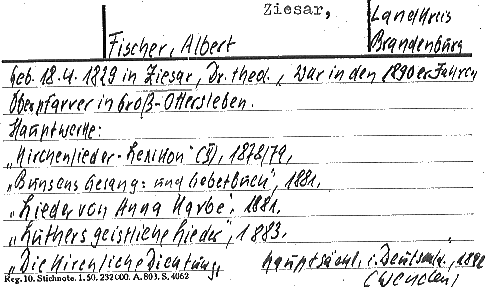 Ziesar, Landkreis
Fischer, Albert Brandenburg
Geb. 18.4.1829 in Ziesar, Dr. theol., war in den 1890er Jahren
Oberpfarrer in Groß-Ottersleben.
Hauptwerke:
„Kirchenlieder-Lexikon" (II), 1878/79,
„Bunsens Gesang- und Gebetbuch", 1881,
„Lieder von Anna Karbe", 1881,
„Luthers geistliche Lieder", 1883.
„Die Kirchliche Dichtung, hauptsächl. i. Deutschl., 1892
Reg. 10. Stichnote. 1. 50. 232000. A. 803. S. 4062